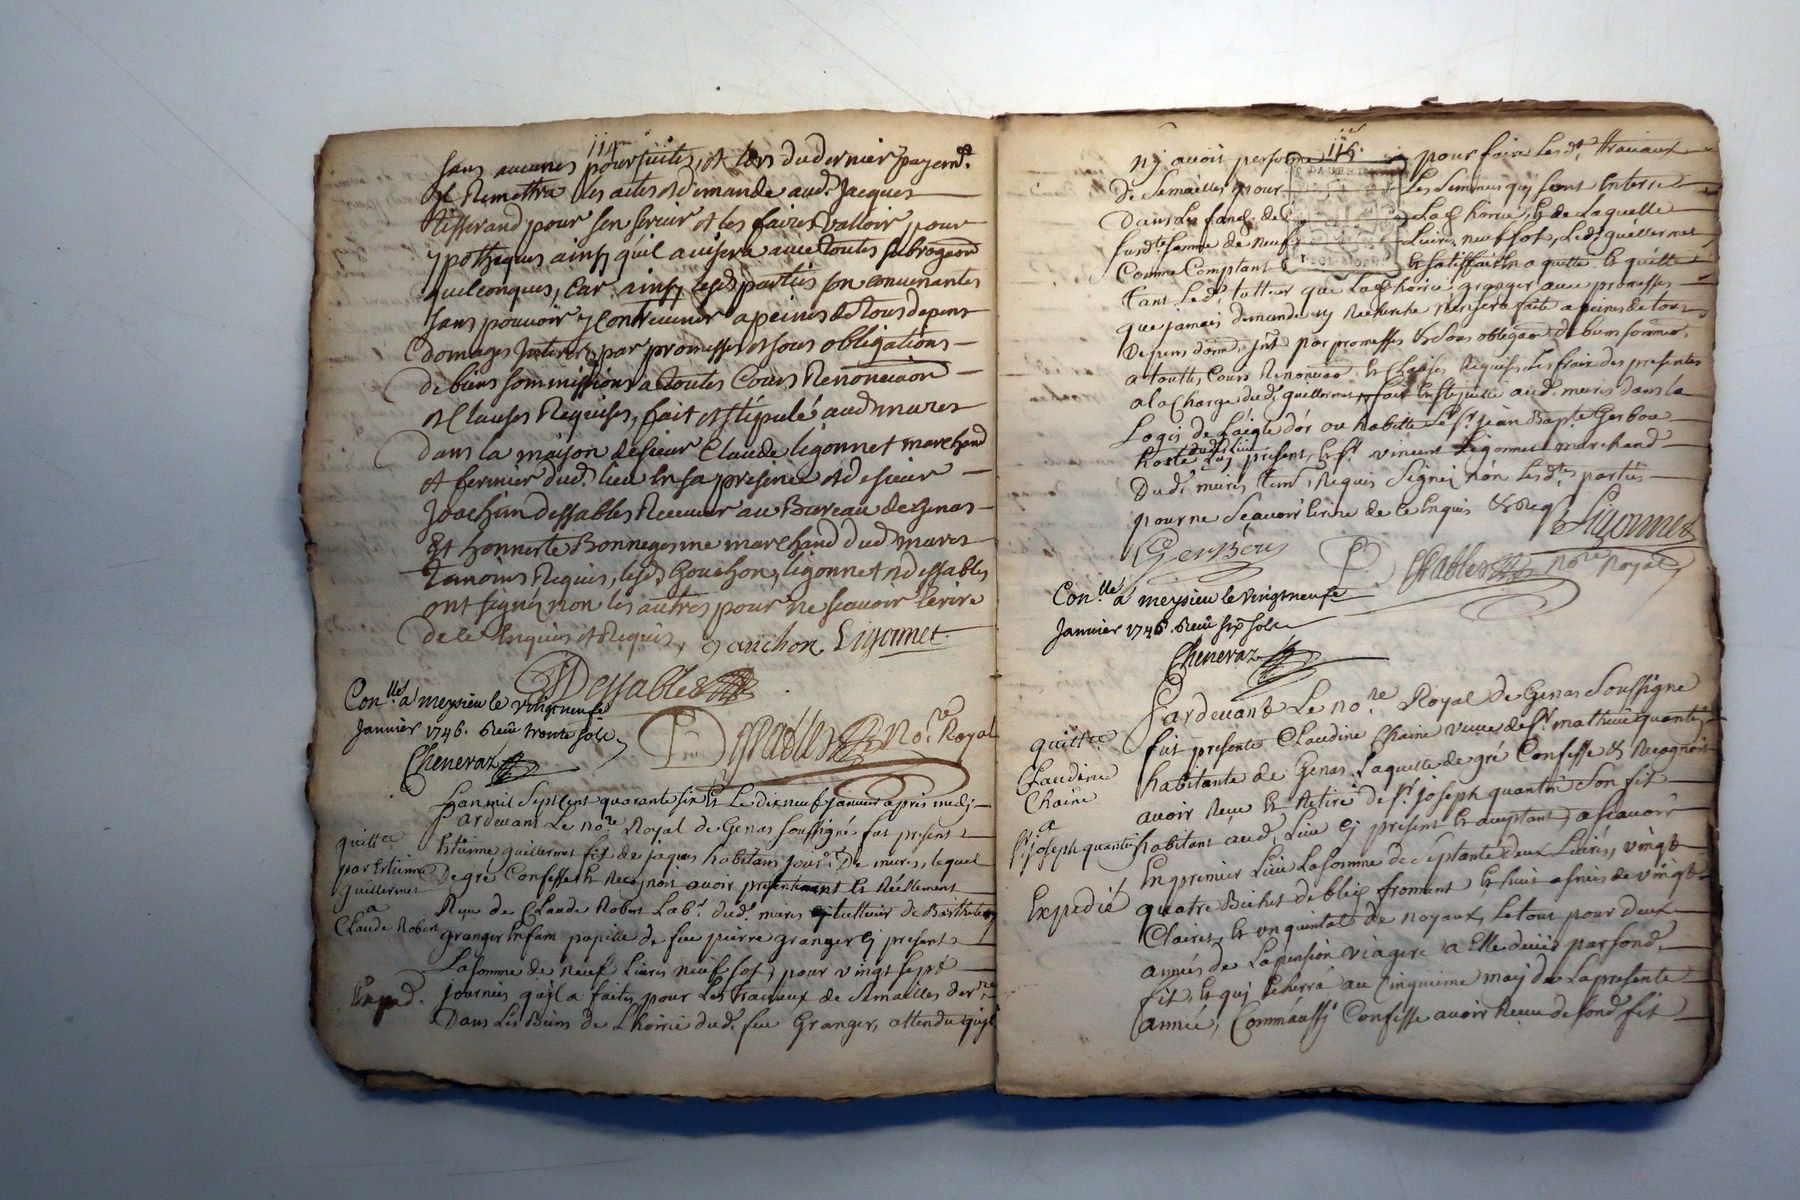 114
sans aucunes poursuites, et lors du dernier payemt.
et Remettra les actes et demande aud. Jacques
tisserand pour sen servir et les faires valloir, pour
ypotheques ainsy quil avisera avec toutes subrogaon
quelconques, Car ainsy lesd. parties son convenantes
sans pouvoir y contrevenir a peines de tous depens
domages Interets par promesses et sous obligations
de biens sommissions a toutes Cours Renonciaon
et Clauses Requises, fait et stipulé aud mures
dans la maison de sieur Claude ligonnet marchand
et fermier dud. lieu En sa presence et de sieur
Joachim dessables Receveur au Bureau de genas
Et honneste Bonne marchand dud mures
temoins Requis, lesd. Gouchon, ligonnet et dessables
ont signés non les autres pour ne scavoir Ecrire
de ce Enquis et Requis, Ligonnet
Dessables
Conllé a meysieu le vingtneufe
Janvier 1746. Reçu trente sols
Cheneraz
Dessables No.re Royal
Lan mil Sept Cent quarante six Et Le dix neuf Janvier apres midy
Pardevant Le No.re Royal de Genas soussigné fut present
quittce
Etienne guillermet fit de jaques habitans de mures, lequel
par Etienne
De gré Confesse Et Recognoit avoir presentement Et Réellement
Guillermet
Reçu de Claude Robert Lab.r dud. mures tutteur de Barthelemy
a
Claude Robert
granger Enfant pupille de feu pierre granger present
La somme de Neuf Livres neuf sols pour vingt sept
Exped.
journées quil a faites pour Les travaux de Semailles
Dans Les Biens de Lhoirie dud. feu Granger, attendu quil
115.
ny avoit personne pour faire Lesd. travaux
De Semailles pour Les Semences qui sont Enterré
Dans Les fonds de Lad. hoirie, Et de Laquelle
susd.te somme de neuf Livres neuf sols, Led. guillermet
Comme Comptant Et satisfait En a quitté Et quitte
tant Led. tutteur que Lad. hoirie granger avec promesses
que jamais demande ny Recherche Nen sera faite a peines de tous
Depens par promesses Et sous obligaon de biens
a toutes Cours Renonciao Et Clauses Requises, Les frais des presentes
a la Charge dud. guillermet, fait Et stipullé aud. mures dans Le
Logis de Laigle d'or ou habitte Le sr. jean Bap.te Gerbou
dud. Lieu
hoste present, Et sr. vincent Ligonnet marchand
Dud. mures tem. Requis Signez non Lesd.tes parties
pour ne Scavoir Ecrire de ce Enquis & Req
Ligonnet
Gerbou
Dessables No.re Royal
Conllé a meysieu le vingtneufe
Janvier 1746. Reçu six sols
Cheneraz
Pardevant Le No.re Royal de Genas Soussigné
quittce
fut presente Claudine Chaine veuve de sr. mathieu quantin
Claudine
habitante de Genas Laquelle de gré Confesse & Recognoit
Chaine
avoir Reçu Et Retiré de sr. joseph quantin Son fit
a
sr. joseph quantin
habitant aud. Lieu present Et acceptant, a scavoir
En premier Lieu La somme de septante deux Livres, vingt
Expedié
quatre Bichets de bled froment, Et huit de vingt
Claires Et un quintal de Noyaux, Le tout pour deux
années de La pension viagere a Elle duë par sond.
fit, Et qui Echerra au Cinquieme may de La presente
année, Comm'aussy Confesse avoir Reçu de sond. fit